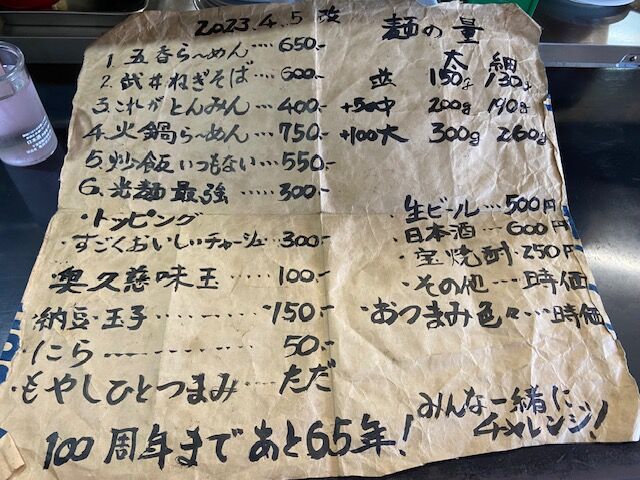 2023.4.5 改
1. 五香ら〜めん…650.-
2. 武井ねぎそば…600.-
3. これがとんみん…400.-
4. 火鍋ら〜めん…750.-
5. 炒飯いつもない…550.-
6. 光麺最強……300.-
・トッピング
・すごくおいしいチャーシュー 300.-
奥久慈味玉……100.-
納豆・玉子………150.-
にら…………50.-
もやしひとつまみ…ただ
麺の量
太 細
並 150g 130g
+50中 200g 190g
+100大 300g 260g
・生ビール…500円
・日本酒…600円
・宝焼酎・250円
・その他…時価
・おつまみ色々…時価
みんな一緒に
チャレンジ!
100周年まであと65年!